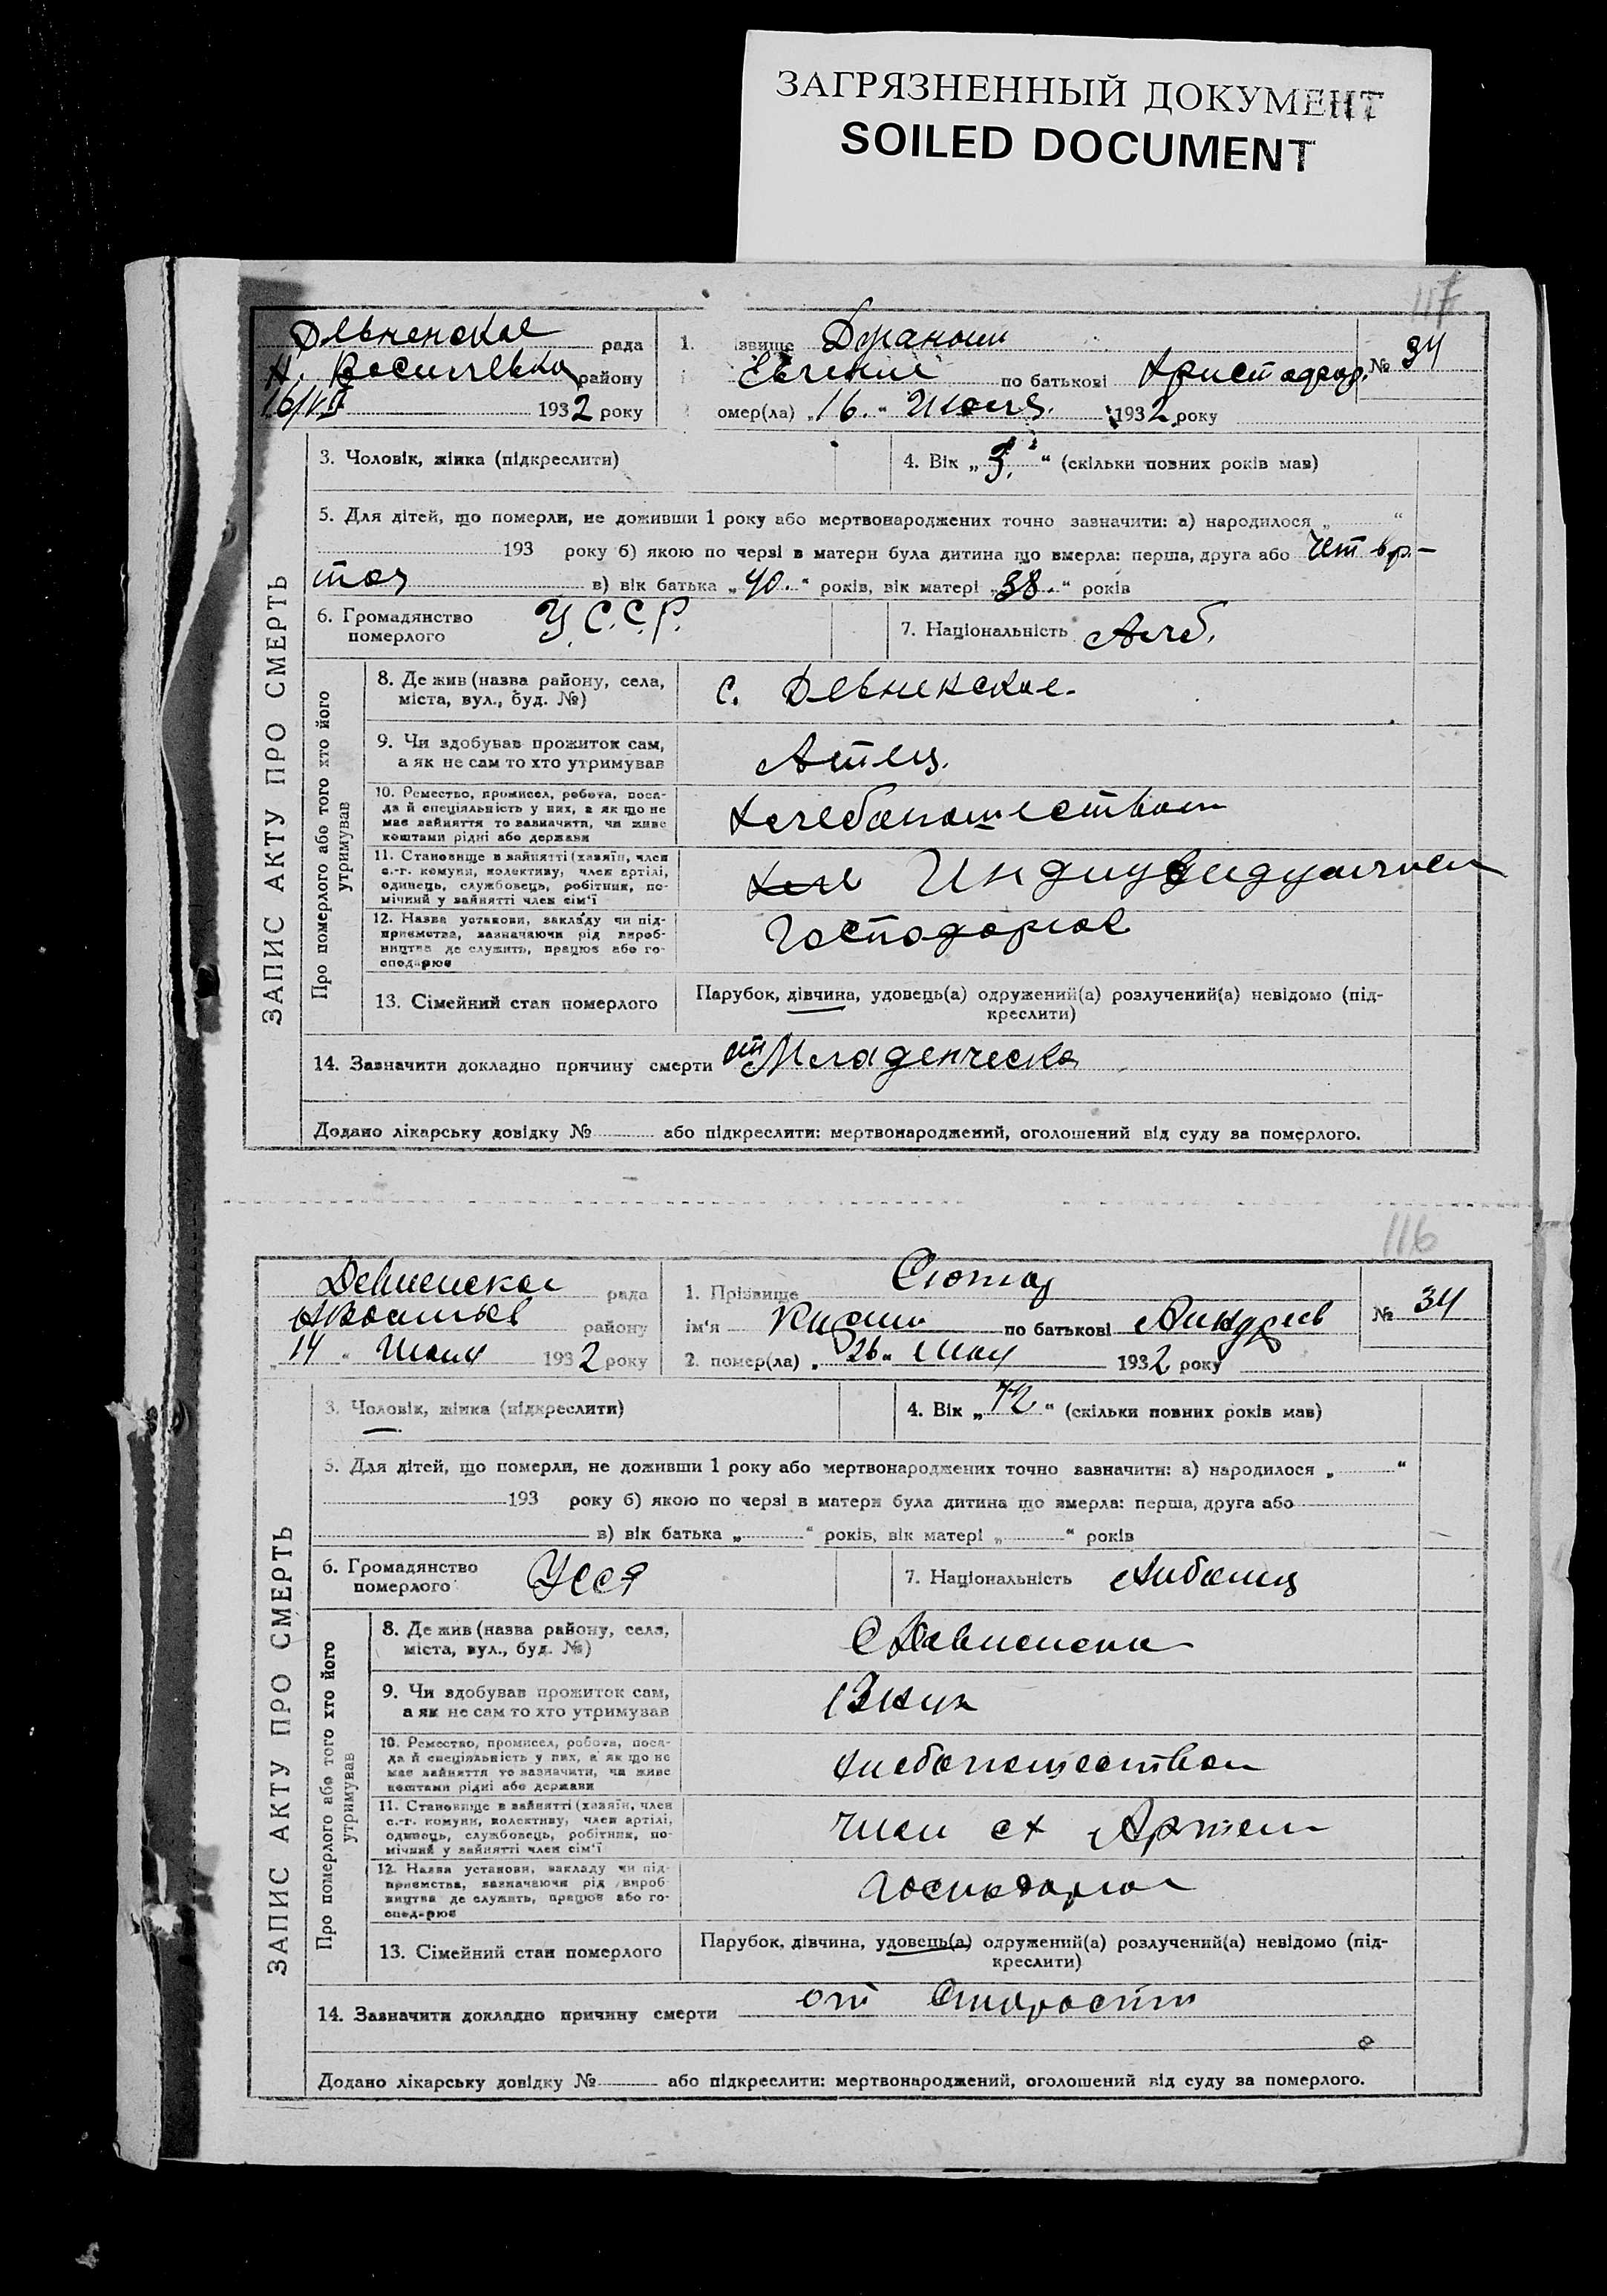 ЗАГРЯЗНЕННЫЙ ДОКУМЕНТ
SOILED DOCUMENT
117
Девненское рада
Н. Васильевка району
16/VII 1932 року
1. ізвище
Евгений по батькові Христофор. № 34
омер(ла) „16.“ Июля. 1932 року
ЗАПИС АКТУ ПРО СМЕРТЬ
3. Чоловік, жінка (підкреслити)
4. Вік „3.“ (скільки повних років мав)
5. Для дітей, що померли, не доживши 1 року або мертвонароджених точно зазначити: а) народилося „ “
193 року б) якою по черзі в матери була дитина що вмерла: перша, друга або четвер-
той в) вік батька „40.“ років, вік матері „38.“ років
6. Громадянство
померлого
У.С.С.Р.
7. Національність Алб.
Про померлого або того хто його
утримував
8. Де жив (назва району, села,
міста, вул., буд. №)
с. Девненское.
9. Чи здобував прожиток сам,
а як не сам то хто утримував
Атец.
10. Ремество, промисел, робота, поса-
да й спеціяльність у них, а як що не
має зайняття то зазначити, чи живе
коштами рідні або держави
Хлебопашеством
11. Становище в зайнятті (хазяїн, член
с.-г. комуни, колективу, член артілі,
одинець, службовець, робітник, по-
мічний у зайнятті член сім'ї
12. Назва установи, закладу чи під-
приємства, зазначаючи рід вироб-
ництва де служить, працює або го-
сподарює
Господарює
13. Сімейний стан померлого
Парубок, дівчина, удовець(а) одружений(а) розлучений(а) невідомо (під-
креслити)
14. Зазначити докладно причину смерти от Младенческа
Додано лікарську довідку № або підкреслити: мертвонароджений, оголошений від суду за померлого.
116
Девненское рада
району
„14“ Июня 1932 року
1. Прізвище
ім'я по батькові Андреев № 34
2. помер(ла) „26“ Мая 1932 року
ЗАПИС АКТУ ПРО СМЕРТЬ
3. Чоловік, жінка (підкреслити)
4. Вік „72“ (скільки повних років мав)
5. Для дітей, що померли, не доживши 1 року або мертвонароджених точно зазначити: а) народилося „ “
193 року б) якою по черзі в матери була дитина що вмерла: перша, друга або
в) вік батька „ “ років, вік матері „ “ років
6. Громадянство
померлого
УССР
7. Національність Албанец
Про померлого або того хто його
утримував
8. Де жив (назва району, села,
міста, вул., буд. №)
С Девненска
9. Чи здобував прожиток сам,
а як не сам то хто утримував
Внук
10. Ремество, промисел, робота, поса-
да й спеціяльність у них, а як що не
має зайняття то зазначити, чи живе
коштами рідні або держави
Хлебопашеством
11. Становище в зайнятті (хазяїн, член
с.-г. комуни, колективу, член артілі,
одинець, службовець, робітник, по-
мічний у зайнятті член сім'ї
член сх Артели
12. Назва установи, закладу чи під-
приємства, зазначаючи рід вироб-
ництва де служить, працює або го-
сподарює
13. Сімейний стан померлого
Парубок, дівчина, удовець(а) одружений(а) розлучений(а) невідомо (під-
креслити)
14. Зазначити докладно причину смерти от Старости
Додано лікарську довідку № або підкреслити: мертвонароджений, оголошений від суду за померлого.